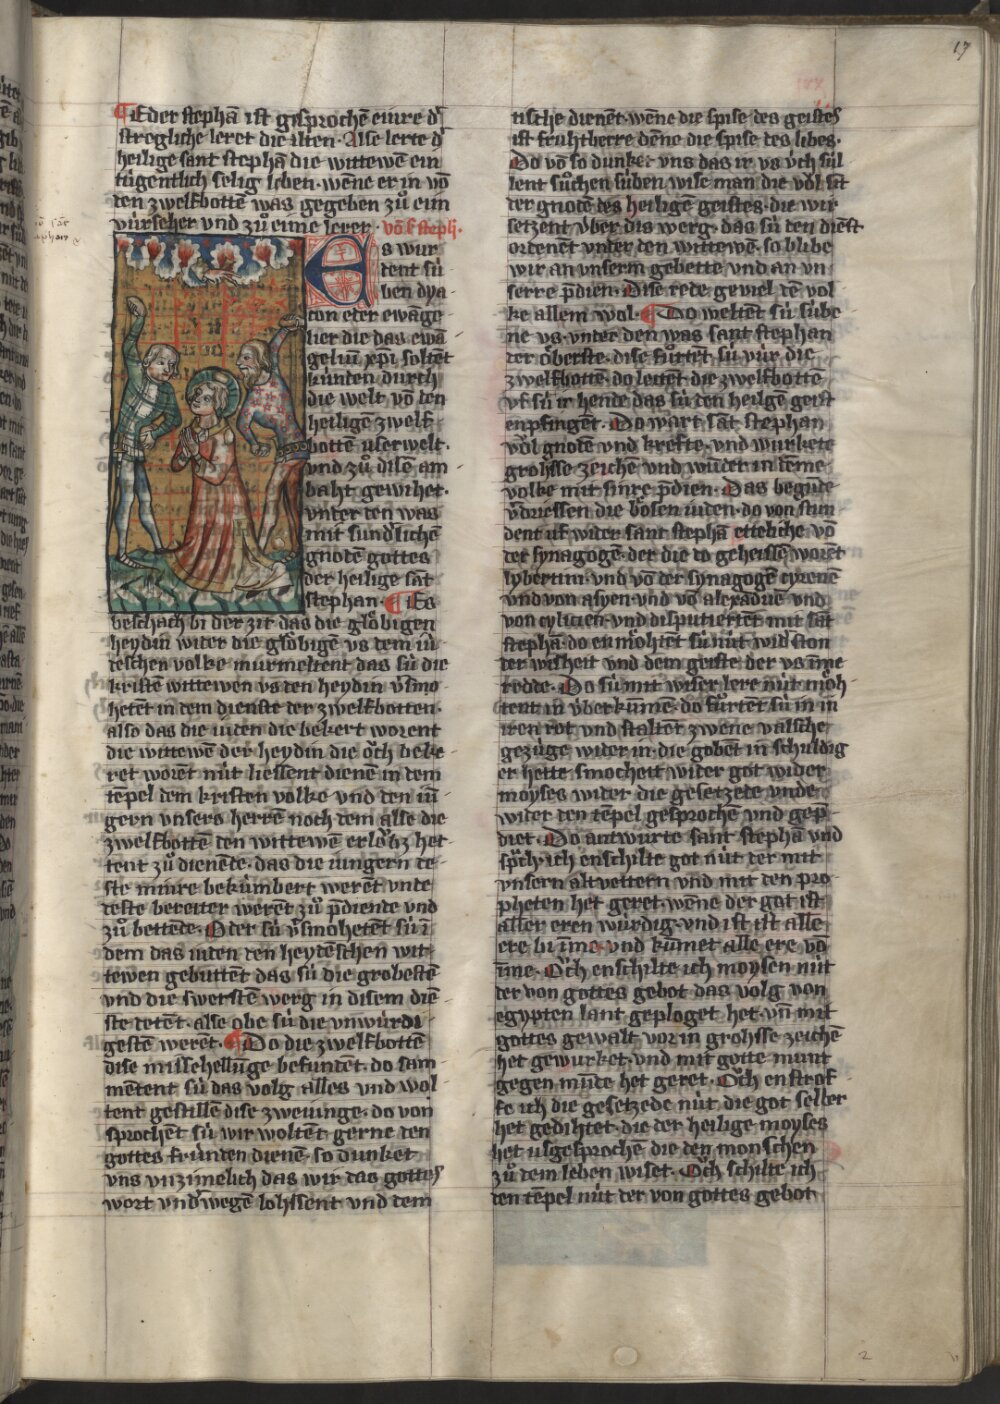 17
¶ Oder stephā ist gesprochē eiure d'
stregliche leret die alten. Alse lerte d'
heilige sant stephā die wittewē ein
tugentlich selig leben. wēne er in vō
den zwelfbottē was gegeben zů ein
vürseher vnd zů eime lerer. vō s steph.
ES wur
dent sü
ben dya
con eder ewāge
lier die das ewā
geliū xp̄i soltēt
künden durch
die welt. vō den
heiligē zwelf
bottē userwelt.
vnd zů disē am
baht gewihet.
vnter den was
mit sundlichē
gnodē gottes
der heilige sāt
stephan. ¶ Es
beschach bi der zit das die glöbigen
heydin wider die glöbigē vs dem iu
deschen volke murmeltent das sü die
kristē wittewen vs den heydin v̄smo
hetēt in dem dienste der zwelfbotten.
also das die iuden die bekert worent
die wittewē der heydin die öch beke
ret worēt nüt liessent dienē in dem
tēpel dem kristen volke vnd den iū
gern vnsers herrē noch dem alse die
zwelfbottē den wittewē erlöbz het
tent zů dienēde. das die iungern de
ste minre bekümbert werēt vnde
deste bereiter werēt zů p̄diende vnd
zů bettēde. Oder sü v̄smohetēt sü ī
dem das iuden den heydēschen wit
tewen gebuttēt das sü die grobestē
vnd die swerstē werg in disem diē
ste tetēt. alse obe sü die vnwürdi
gestē werēt. ¶ Do die zwelfbottē
dise missehellūge befundēt. do sam
mētent sü das volg alles vnd wol
tent gestillē dise zweiunge. do von
sprochēt sü wir woltēt gerne den
gottes fründen dienē. so dunket
vns vnzimelich das wir das gottes
wort vnd wegē lohssent vnd dem
tische dienēt. wēne die spise des geistes
ist fruhtberre dēne die spise des libes.
Do vō so dunket vns das ir vs vch sül
lent sůchen süben wise man die vol sīt
der gnodē des heiligē geistes. die wir
setzent vber dis werg. das sü den dienst
ordenēt vnder den wittewē. so blibē
wir an vnserm gebette vnd an vn
serre p̄dien. Dise rede geviel dē vol
ke allem wol. ¶ Do weltēt sü sübe
ne vs. vnter den was sant stephan
der öberste. dise fürtēt sü vür die
zwelfbottē. do leitēt die zwelfbottē
vf sü ir hende das sü den heilgē geist
enpfingēt. Do wart sāt stephan
vol gnodē vnd krefte. vnd wurkete
grohsse zeichē vnd wūder in dēme
volke mit sinre p̄dien. Das begūde
v̄driessen die bösen iuden. do von stun
dent uf wider sant stephā etteliche vō
der synagogē. der die do geheissē worēt
lybertini. vnd vō der synagogē cyrenē
vnd von asyen. vnd vō alexādriē vnd
von cylicien. vnd disputiertēt mit sāt
stephā. do enmöhtēt sü nüt wid'ston
der wisheit vnd dem geiste der vs īme
redde. Do sü mit wiser lere nüt moh
tent in vberkūmē. do fůrtēt sü in in
iren rot vnd staltēt zwene valsche
gezüge wider in. die gobēt in schuldig
er hette smocheit wider got wider
moyses wider die gesetzede vnde
wider den tēpel gesprochē vnd gep̄
diet. Do antwurte sant stephā vnd
sp̄ch. ich enschilte got nüt der mit
vnsern altvettern vnd mit den pro
pheten het geret. wēne der got ist
aller eren würdig. vnd ist ist alle
ere bi īme. vnd kūmet alle ere vō
īme. Öch enschilte ich moysen nüt
der von gottes gebot das volg von
egypten lant geploget het. vn̄ mit
gottes gewalt vor in grohsse zeichē
het gewurket. vnd mit gotte munt
gegen mūde het geret. Öch enstrof
fe ich die gesetzede nüt. die got selber
het gedihtet. die der heilige moyses
het usgesprochē die den monschen
zů dem leben wiset. Öch schilte ich
den tēpel nüt der von gottes gebot
2